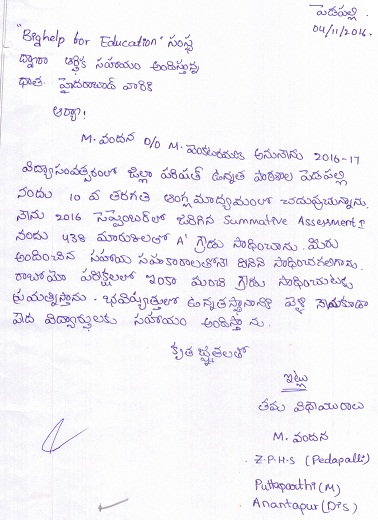 పెడపల్లి,
04/11/2016.
"Bighelp for Education" సంస్థ
ద్వారా ఆర్థిక సహాయం అందిస్తున్న
దాత. హైదరాబాద్ వారికి
ఆర్యా!
M. వందన D/O M. వెంకటరాయుడు అనునాను 2016-17
విద్యాసంవత్సరంలో జిల్లా పరిషత్ ఉన్నత పాఠశాల పెడపల్లి
నందు 10 వ తరగతి ఆంగ్ల మాధ్యమంలో చదువుచున్నాను.
నేను 2016 సెప్టెంబర్‌లో జరిగిన Summative Assessment I
నందు 438 మార్కులతో A' గ్రేడు సాధించాను. మీరు
అందించిన సహాయ సహకారాలతోనే దీనిని సాధించగలిగాను.
రాబోయే పరీక్షలలో ఇంకా మంచి గ్రేడు సాధించుటకు
ప్రయత్నిస్తాను. భవిష్యత్తులో ఉన్నతస్థానానికి వెళ్లి నేనుకూడా
పేద విద్యార్థులకు సహాయం అందిస్తాను.
కృతజ్ఞతలతో
ఇట్లు
తమ విధేయురాలు
M. వందన
Z.P.H.S (Pedapalli)
Puttaparthi (M)
Anantapur (Dis)